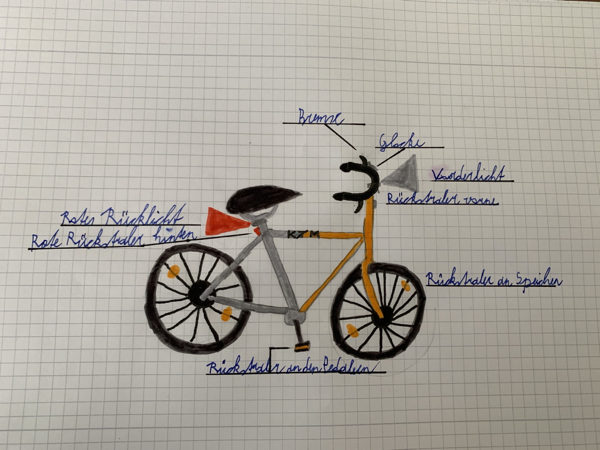 Bremse
Glocke
Vorderlicht
Rückstraler vorne
Rotes Rücklicht
Rote Rückstraler hinten
KTM
Rückstraler an Speichen
Rückstraler an den Pedalen